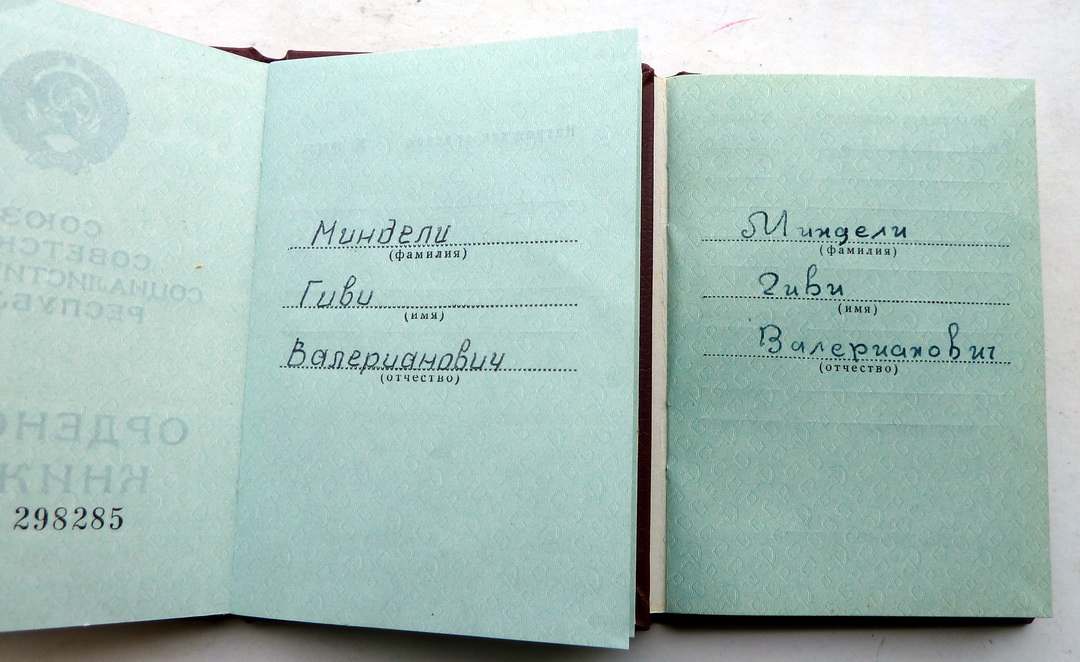 СОЮЗ
СОВЕТСК
СОЦИАЛИСТИ
РЕСПУБЛ
ОРДЕНС
КНИЖ
298285
Миндели
(фамилия)
Гиви
(имя)
Валерианович
(отчество)
Миндели
(фамилия)
Гиви
(имя)
Валерианович
(отчество)